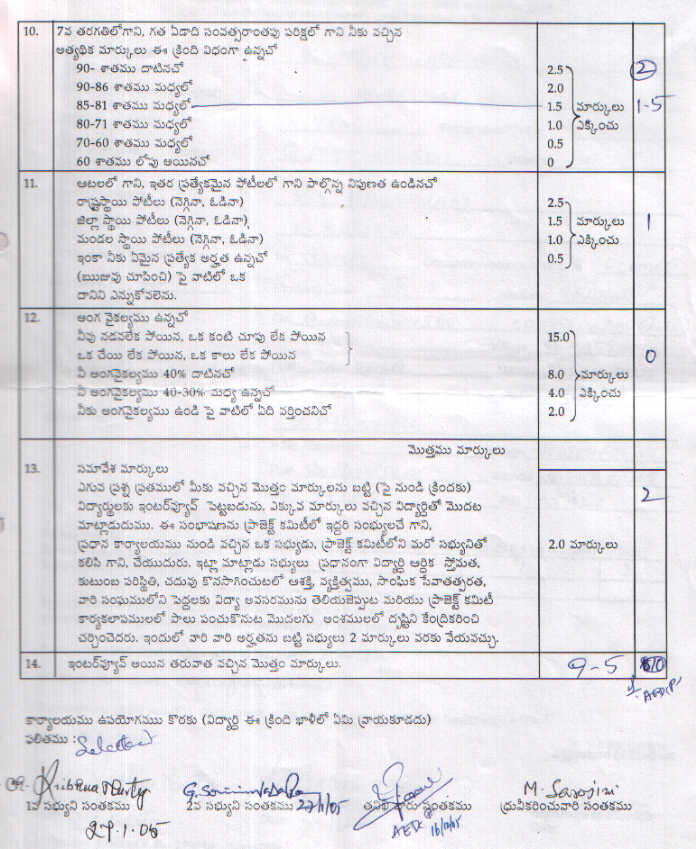 10. 7వ తరగతిలోగాని, గత ఏడాది సంవత్సరాంతపు పరీక్షలో గాని నీకు వచ్చిన
అత్యధిక మార్కులు ఈ క్రింది విధంగా ఉన్నచో
90- శాతము దాటినచో 2.5 2
90-86 శాతము మధ్యలో 2.0
85-81 శాతము మధ్యలో 1.5 మార్కులు 1-5
80-71 శాతము మధ్యలో 1.0 ఎక్కించు
70-60 శాతము మధ్యలో 0.5
60 శాతము లోపు అయినచో 0
11. ఆటలలో గాని, ఇతర ప్రత్యేకమైన పోటీలలో గాని పాల్గొన్న నిపుణత ఉండినచో
రాష్ట్రస్థాయి పోటీలు (నెగ్గినా, ఓడినా) 2.5
జిల్లా స్థాయి పోటీలు (నెగ్గినా, ఓడినా) 1.5 మార్కులు 1
మండల స్థాయి పోటీలు (నెగ్గినా, ఓడినా) 1.0 ఎక్కించు
ఇంకా నీకు ఏమైన ప్రత్యేక అర్హత ఉన్నచో 0.5
(ఋజువు చూపించి) పై వాటిలో ఒక
దానిని ఎన్నుకోవలెను.
12. అంగ వైకల్యము ఉన్నచో
నీవు నడవలేక పోయిన, ఒక కంటి చూపు లేక పోయిన 15.0
ఒక చేయి లేక పోయిన, ఒక కాలు లేక పోయిన 0
నీ అంగవైకల్యము 40% దాటినచో 8.0 మార్కులు
నీ అంగవైకల్యము 40-30% మధ్య ఉన్నచో 4.0 ఎక్కించు
నీకు అంగవైకల్యము ఉండి పై వాటిలో ఏది వర్తించనిచో 2.0
మొత్తము మార్కులు
13. సమావేశ మార్కులు
ఎగువ ప్రశ్న ప్రతములో మీకు వచ్చిన మొత్తం మార్కులను బట్టి (పై నుండి క్రిందకు) 2
విద్యార్థులకు ఇంటర్వ్యూవ్ పెట్టబడును. ఎక్కువ మార్కులు వచ్చిన విద్యార్థితో మొదట
మాట్లాడుదుము. ఈ సంభాషణను ప్రాజెక్ట్ కమిటీలో ఇద్దరి సంభ్యులచే గాని,
ప్రధాన కార్యాలయము నుండి వచ్చిన ఒక సభ్యుడు, ప్రాజెక్ట్ కమిటీలోని మరో సభ్యునితో 2.0 మార్కులు
కలిసి గాని, చేయుదురు. ఇట్లా మాట్లాడు సభ్యులు ప్రధానంగా విద్యార్థి ఆర్థిక స్తోమత,
కుటుంబ పరిస్థితి, చదువు కొనసాగించుటలో ఆశక్తి, వ్యక్తిత్వము, సాంఘిక సేవాతత్పరత,
వారి సంఘములోని పెద్దలకు విద్యా అవసరమును తెలియజెప్పుట మరియు ప్రాజెక్ట్ కమిటీ
కార్యకలాపములలో పాలు పంచుకొనుట మొదలగు అంశములలో దృష్టిని కేంద్రీకరించి
చర్చించెదరు. ఇందులో వారి వారి అర్హతను బట్టి సభ్యులు 2 మార్కులు వరకు వేయవచ్చు.
14. ఇంటర్వ్యూవ్ అయిన తరువాత వచ్చిన మొత్తం మార్కులు. 9-5 10
AED(P)
కార్యాలయము ఉపయోగము కొరకు (విద్యార్థి ఈ క్రింది ఖాళీలో ఏమి వ్రాయకూడదు)
ఫలితము : Selected
Krishna Murty M. Sarojini
1వ సభ్యుని సంతకము 2వ సభ్యుని సంతకము 27/1/05 తనిఖీ దారు సంతకము ధ్రువీకరించువారి సంతకము
27.1.05 AED(P) 16/10/05